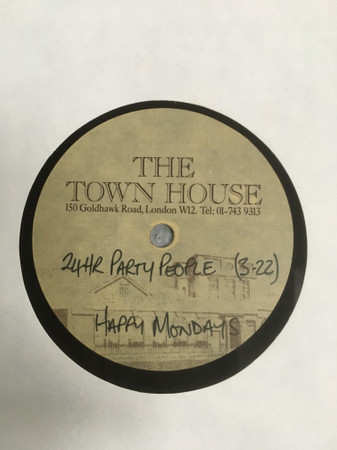 THE
TOWN HOUSE
150 Goldhawk Road, London W12. Tel: 01-743 9313
24HR PARTY PEOPLE (3-22)
HAPPY MONDAYS